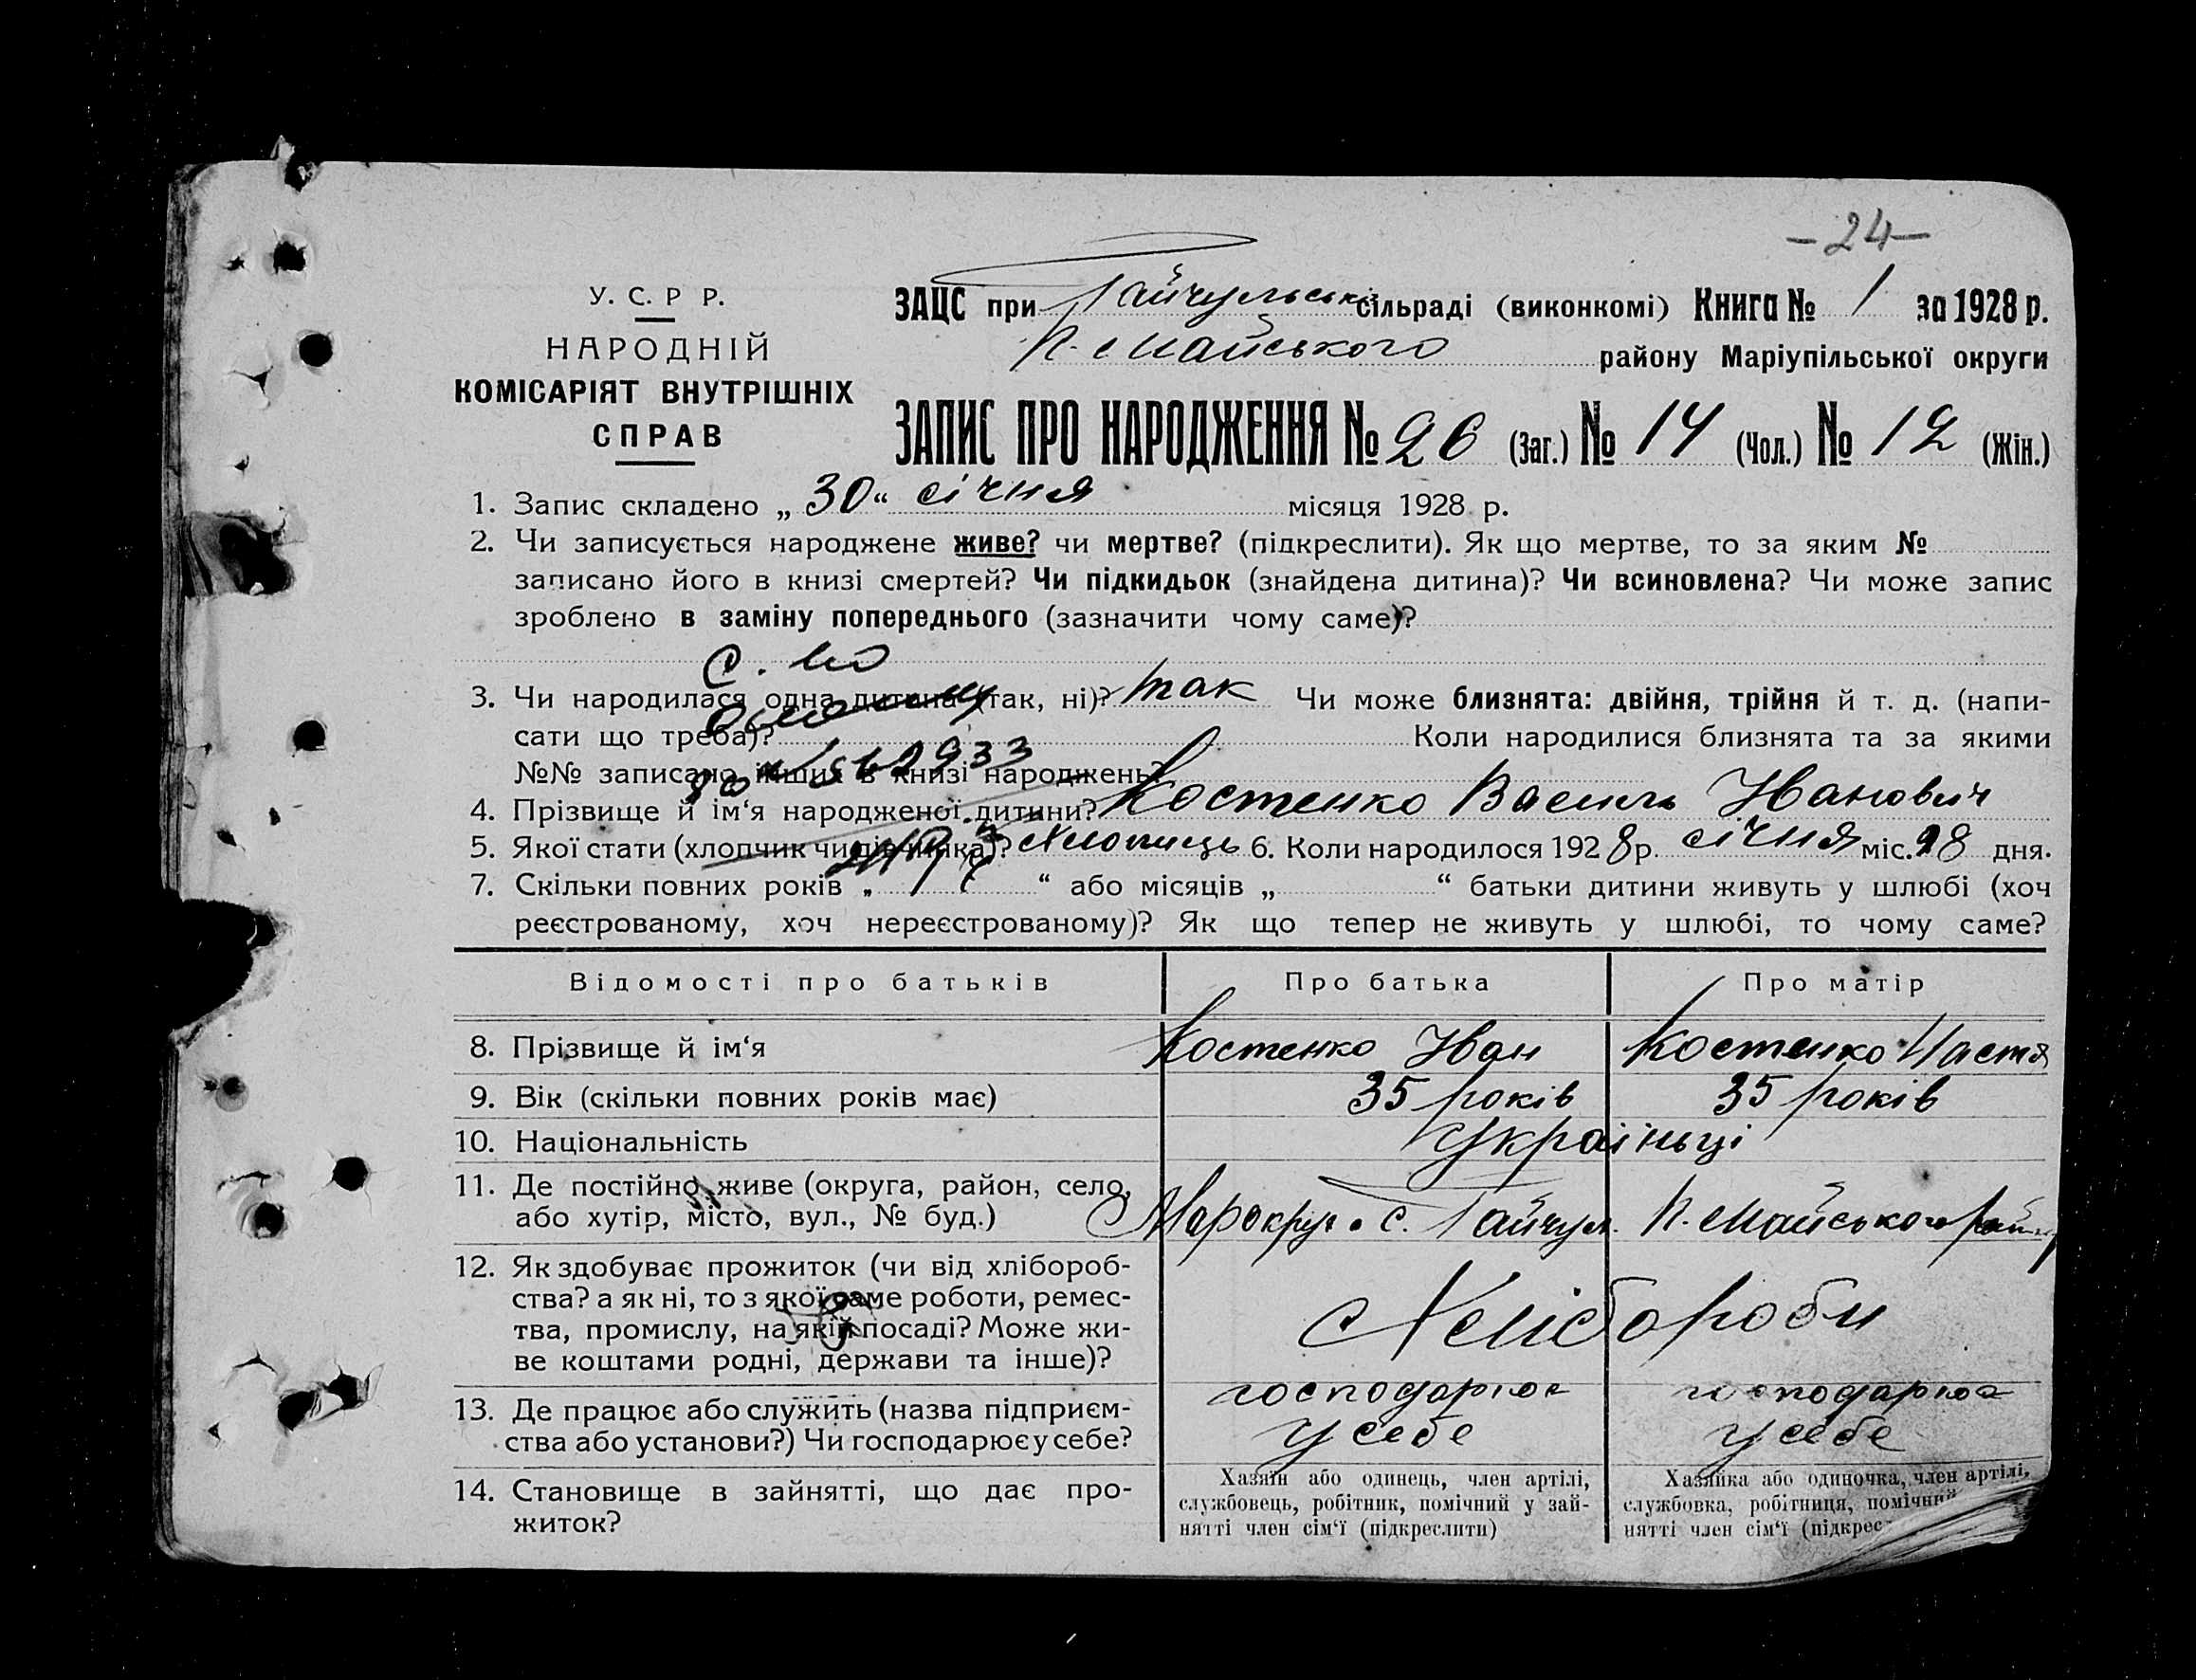 -24-
У. С. Р Р.
НАРОДНІЙ
КОМІСАРІЯТ ВНУТРІШНІХ
СПРАВ
ЗАЦС при Гайчульській сільраді (виконкомі) Книга № 1 за 1928 р.
П. Майського району Маріупільської округи
ЗАПИС ПРО НАРОДЖЕННЯ № 26 (Заг.) № 14 (Чол.) № 12 (Жін.)
1. Запис складено „ 30 “ січня місяця 1928 р.
2. Чи записується народжене живе? чи мертве? (підкреслити). Як що мертве, то за яким №
записано його в книзі смертей? Чи підкидьок (знайдена дитина)? Чи всиновлена? Чи може запис
зроблено в заміну попереднього (зазначити чому саме)?
3. Чи народилася одна дитина (так, ні)? так Чи може близнята: двійня, трійня й т. д. (напи-
сати що треба)? Коли народилися близнята та за якими
№№ записано інших в книзі народжень?
4. Прізвище й ім‘я народженої дитини? Костенко Василь Иванович
5. Якої стати (хлопчик чи дівчинка)? Хлопиць 6. Коли народилося 1928 р. січня міс. 28 дня.
7. Скільки повних років „ “ або місяців „ “ батьки дитини живуть у шлюбі (хоч
реєстрованому, хоч нереєстрованому)? Як що тепер не живуть у шлюбі, то чому саме?
Відомості про батьків Про батька Про матір
8. Прізвище й ім‘я Костенко Иван Костенко Настя
9. Вік (скільки повних років має) 35 років 35 років
10. Національність Україньці
11. Де постійно живе (округа, район, село,
або хутір, місто, вул., № буд.) Марокруг с. Гайчул. П. Майського
12. Як здобуває прожиток (чи від хлібороб-
ства? а як ні, то з якої саме роботи, ремес-
тва, промислу, на якій посаді? Може жи-
ве коштами родні, держави та інше)? Хлібороби
13. Де працює або служить (назва підприєм- господарює господарює
ства або установи?) Чи господарює у себе? у себе у себе
14. Становище в зайнятті, що дає про-
житок?
Хазяїн або одинець, член артілі,
службовець, робітник, помічний у зай-
нятті член сім‘ї (підкреслити)
Хазяйка або одиночка, член артілі,
службовка, робітниця, помічний
нятті член сім‘ї (підкрес